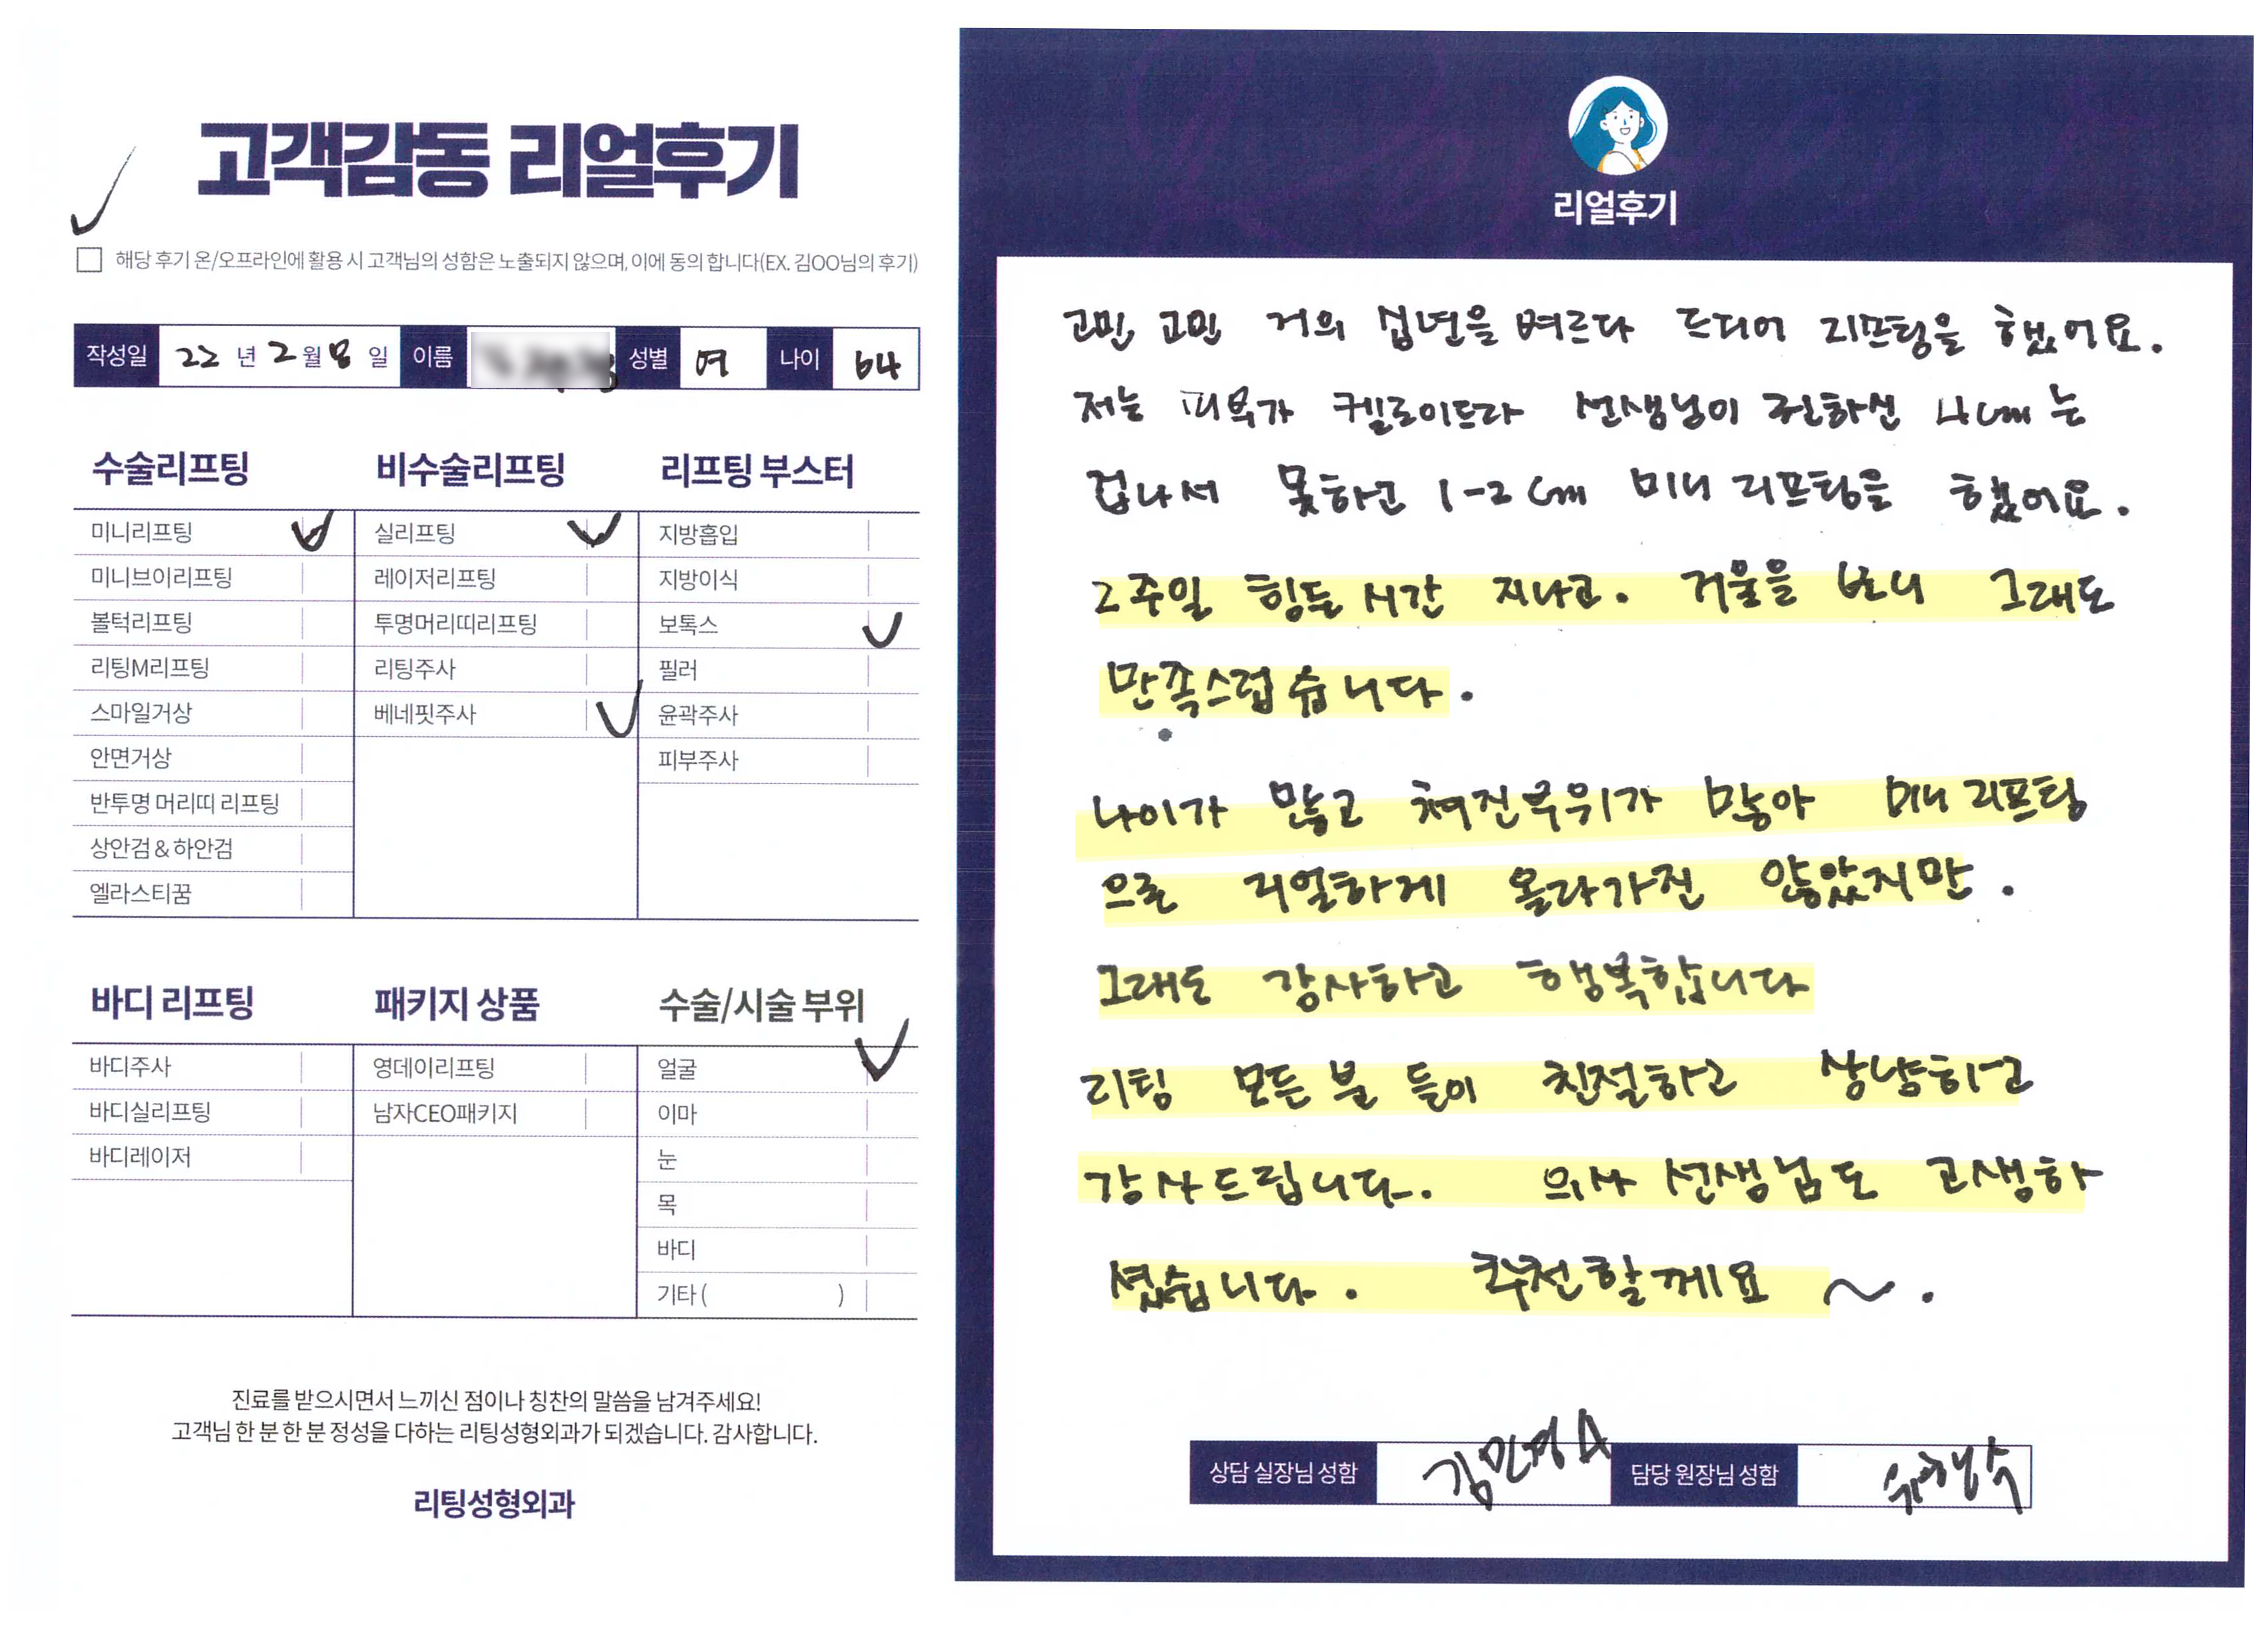 고객감동 리얼후기
해당 후기 온/오프라인에 활용 시 고객님의 성함은 노출되지 않으며, 이에 동의 합니다(EX. 김OO님의 후기)
작성일 22 년 2 월 8 일 이름 성별 여 나이 64
수술리프팅
미니리프팅
미니브이리프팅
볼턱리프팅
리팅M리프팅
스마일거상
안면거상
반투명 머리띠 리프팅
상안검 & 하안검
엘라스티꿈
비수술리프팅
실리프팅
레이저리프팅
투명머리띠리프팅
리팅주사
베네핏주사
리프팅 부스터
지방흡입
지방이식
보톡스
필러
윤곽주사
피부주사
바디 리프팅
바디주사
바디실리프팅
바디레이저
패키지 상품
영데이리프팅
남자CEO패키지
수술/시술 부위
얼굴
이마
눈
목
바디
기타 ( )
진료를 받으시면서 느끼신 점이나 칭찬의 말씀을 남겨주세요!
고객님 한 분 한 분 정성을 다하는 리팅성형외과가 되겠습니다. 감사합니다.
리팅성형외과
리얼후기
고민 고민 거의 십년을 벼르다 드디어 리프팅을 했어요.
저는 피부가 켈로이드라 선생님이 권하신 4cm는
겁나서 못하고 1-2cm 미니 리프팅을 했어요.
2주일 힘든 시간 지나고. 거울을 보니 그래도
만족스럽습니다.
나이가 많고 쳐진부위가 많아 미니 리프팅
으로 리얼하게 올라가진 않았지만.
그래도 감사하고 행복합니다
리팅 모든 분 들이 친절하고 상냥하고
감사드립니다. 의사 선생님도 고생하
셨습니다. 추천할께요 ~.
상담 실장님 성함 담당 원장님 성함